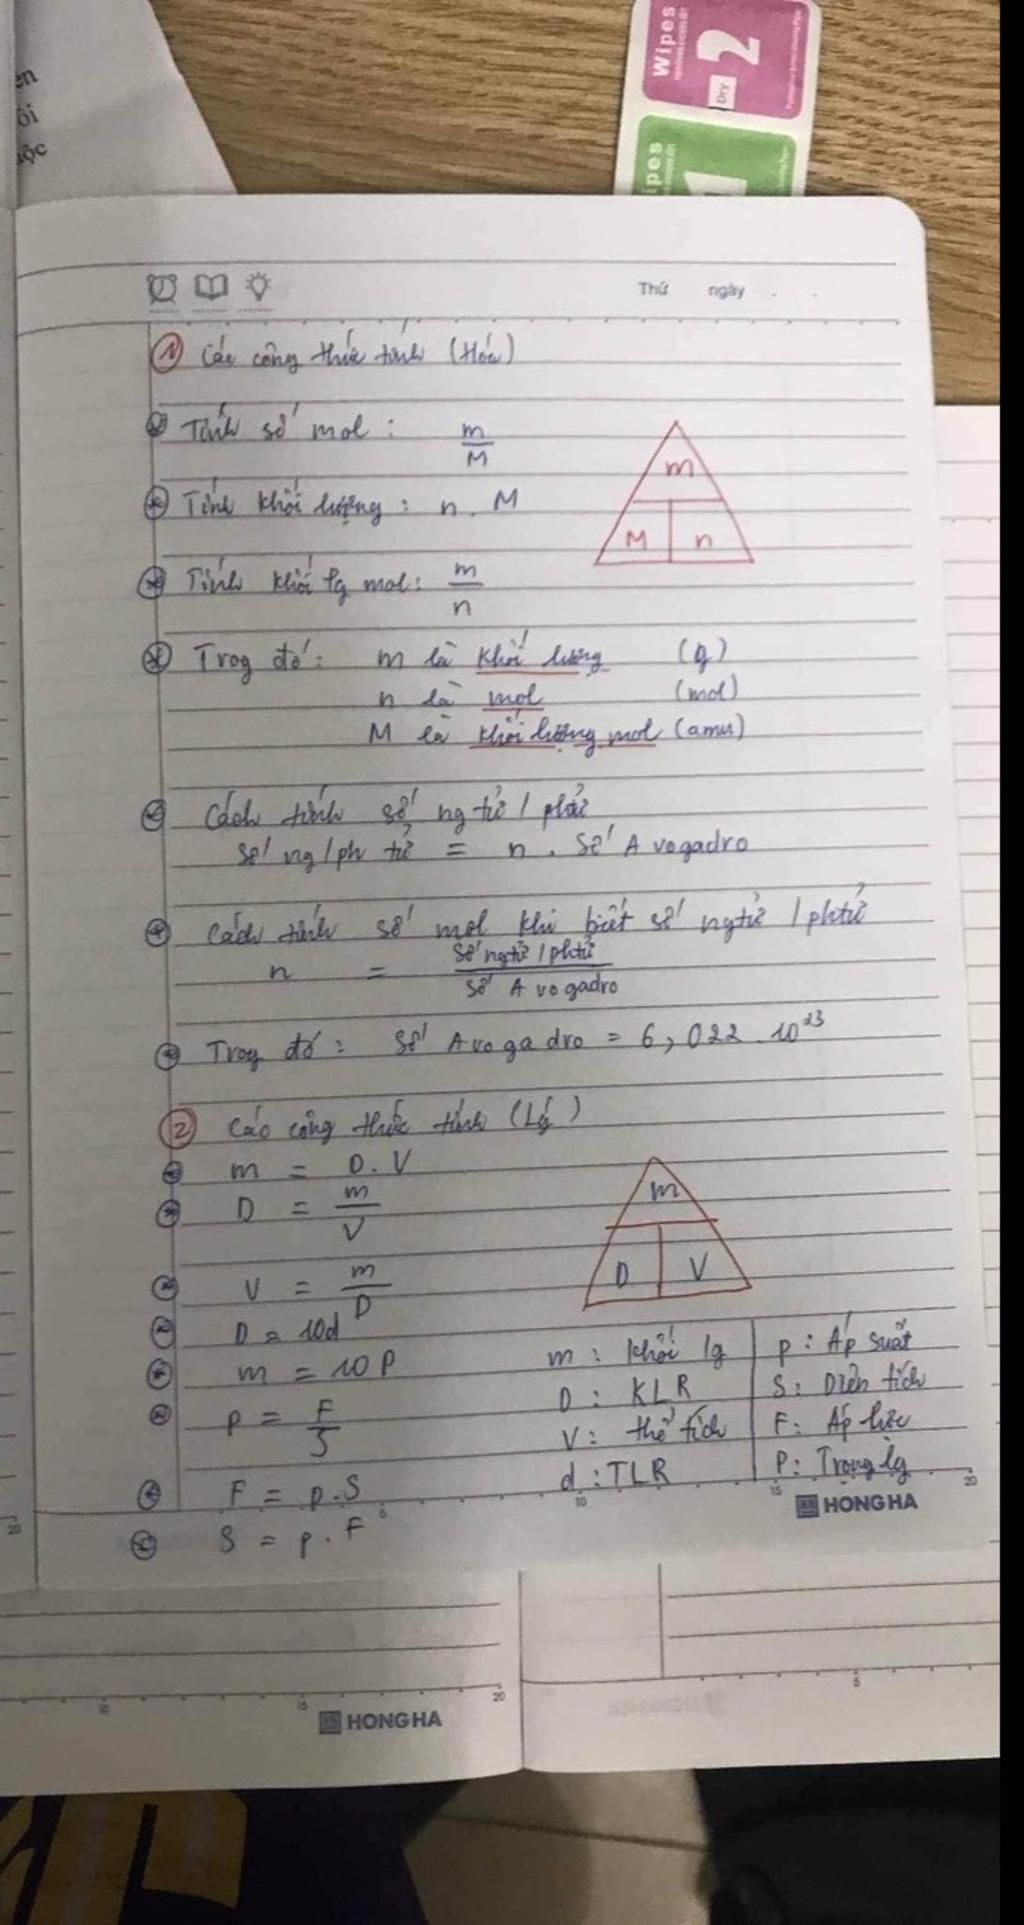 ên
ôi
uộc
Wipes
Dry
2
ipes
Thứ ngày
1 Các công thức tính (Hóa)
Tính số mol : m/M
Tính khối lượng : n . M
m
M n
Tính khối lg mol : m/n
Trog đó : m là khối lượng (g)
n là mol (mol)
M là khối lượng mol (amu)
Cách tính số ng tử / phtử
Số ng/ph tử = n . Số Avogadro
Cách tính số mol khi biết số ngtử / phtử
n = Số ngtử / phtử / Số Avogadro
Trog đó : Số Avogadro = 6,022 . 10²³
2 Các công thức tính (Lý)
m = D . V
D = m/V
m
D V
V = m/D
D = 10d
m = 10P
p = F/S
F = p . S
S = p . F
m : khối lg
D : KLR
V : thể tích
d : TLR
p : Áp suất
S : Diện tích
F : Áp lực
P : Trọng lg
5 10 15 20
HONG HA
20
10 15 20
HONG HA
5